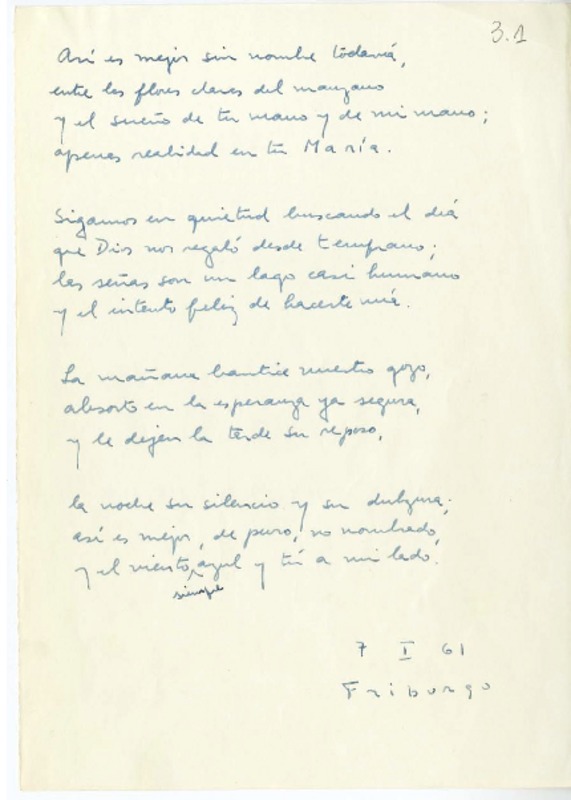 3.1
Así es mejor sin nombre todavía,
entre las flores claras del manzano
y el sueño de tu mano y de mi mano;
apenas realidad en tu María.
Sigamos en quietud buscando el día
que Dios nos regaló desde temprano;
las señas son un lago casi humano
y el intento feliz de hacerte mía.
La mañana bautice nuestro gozo,
absorto en la esperanza ya segura,
y le dejen la tarde su reposo,
la noche su silencio y su dulzura;
así es mejor, de puro, no nombrado,
y el viento, azul y tú a mi lado.
siempre
7 I 61
Friburgo